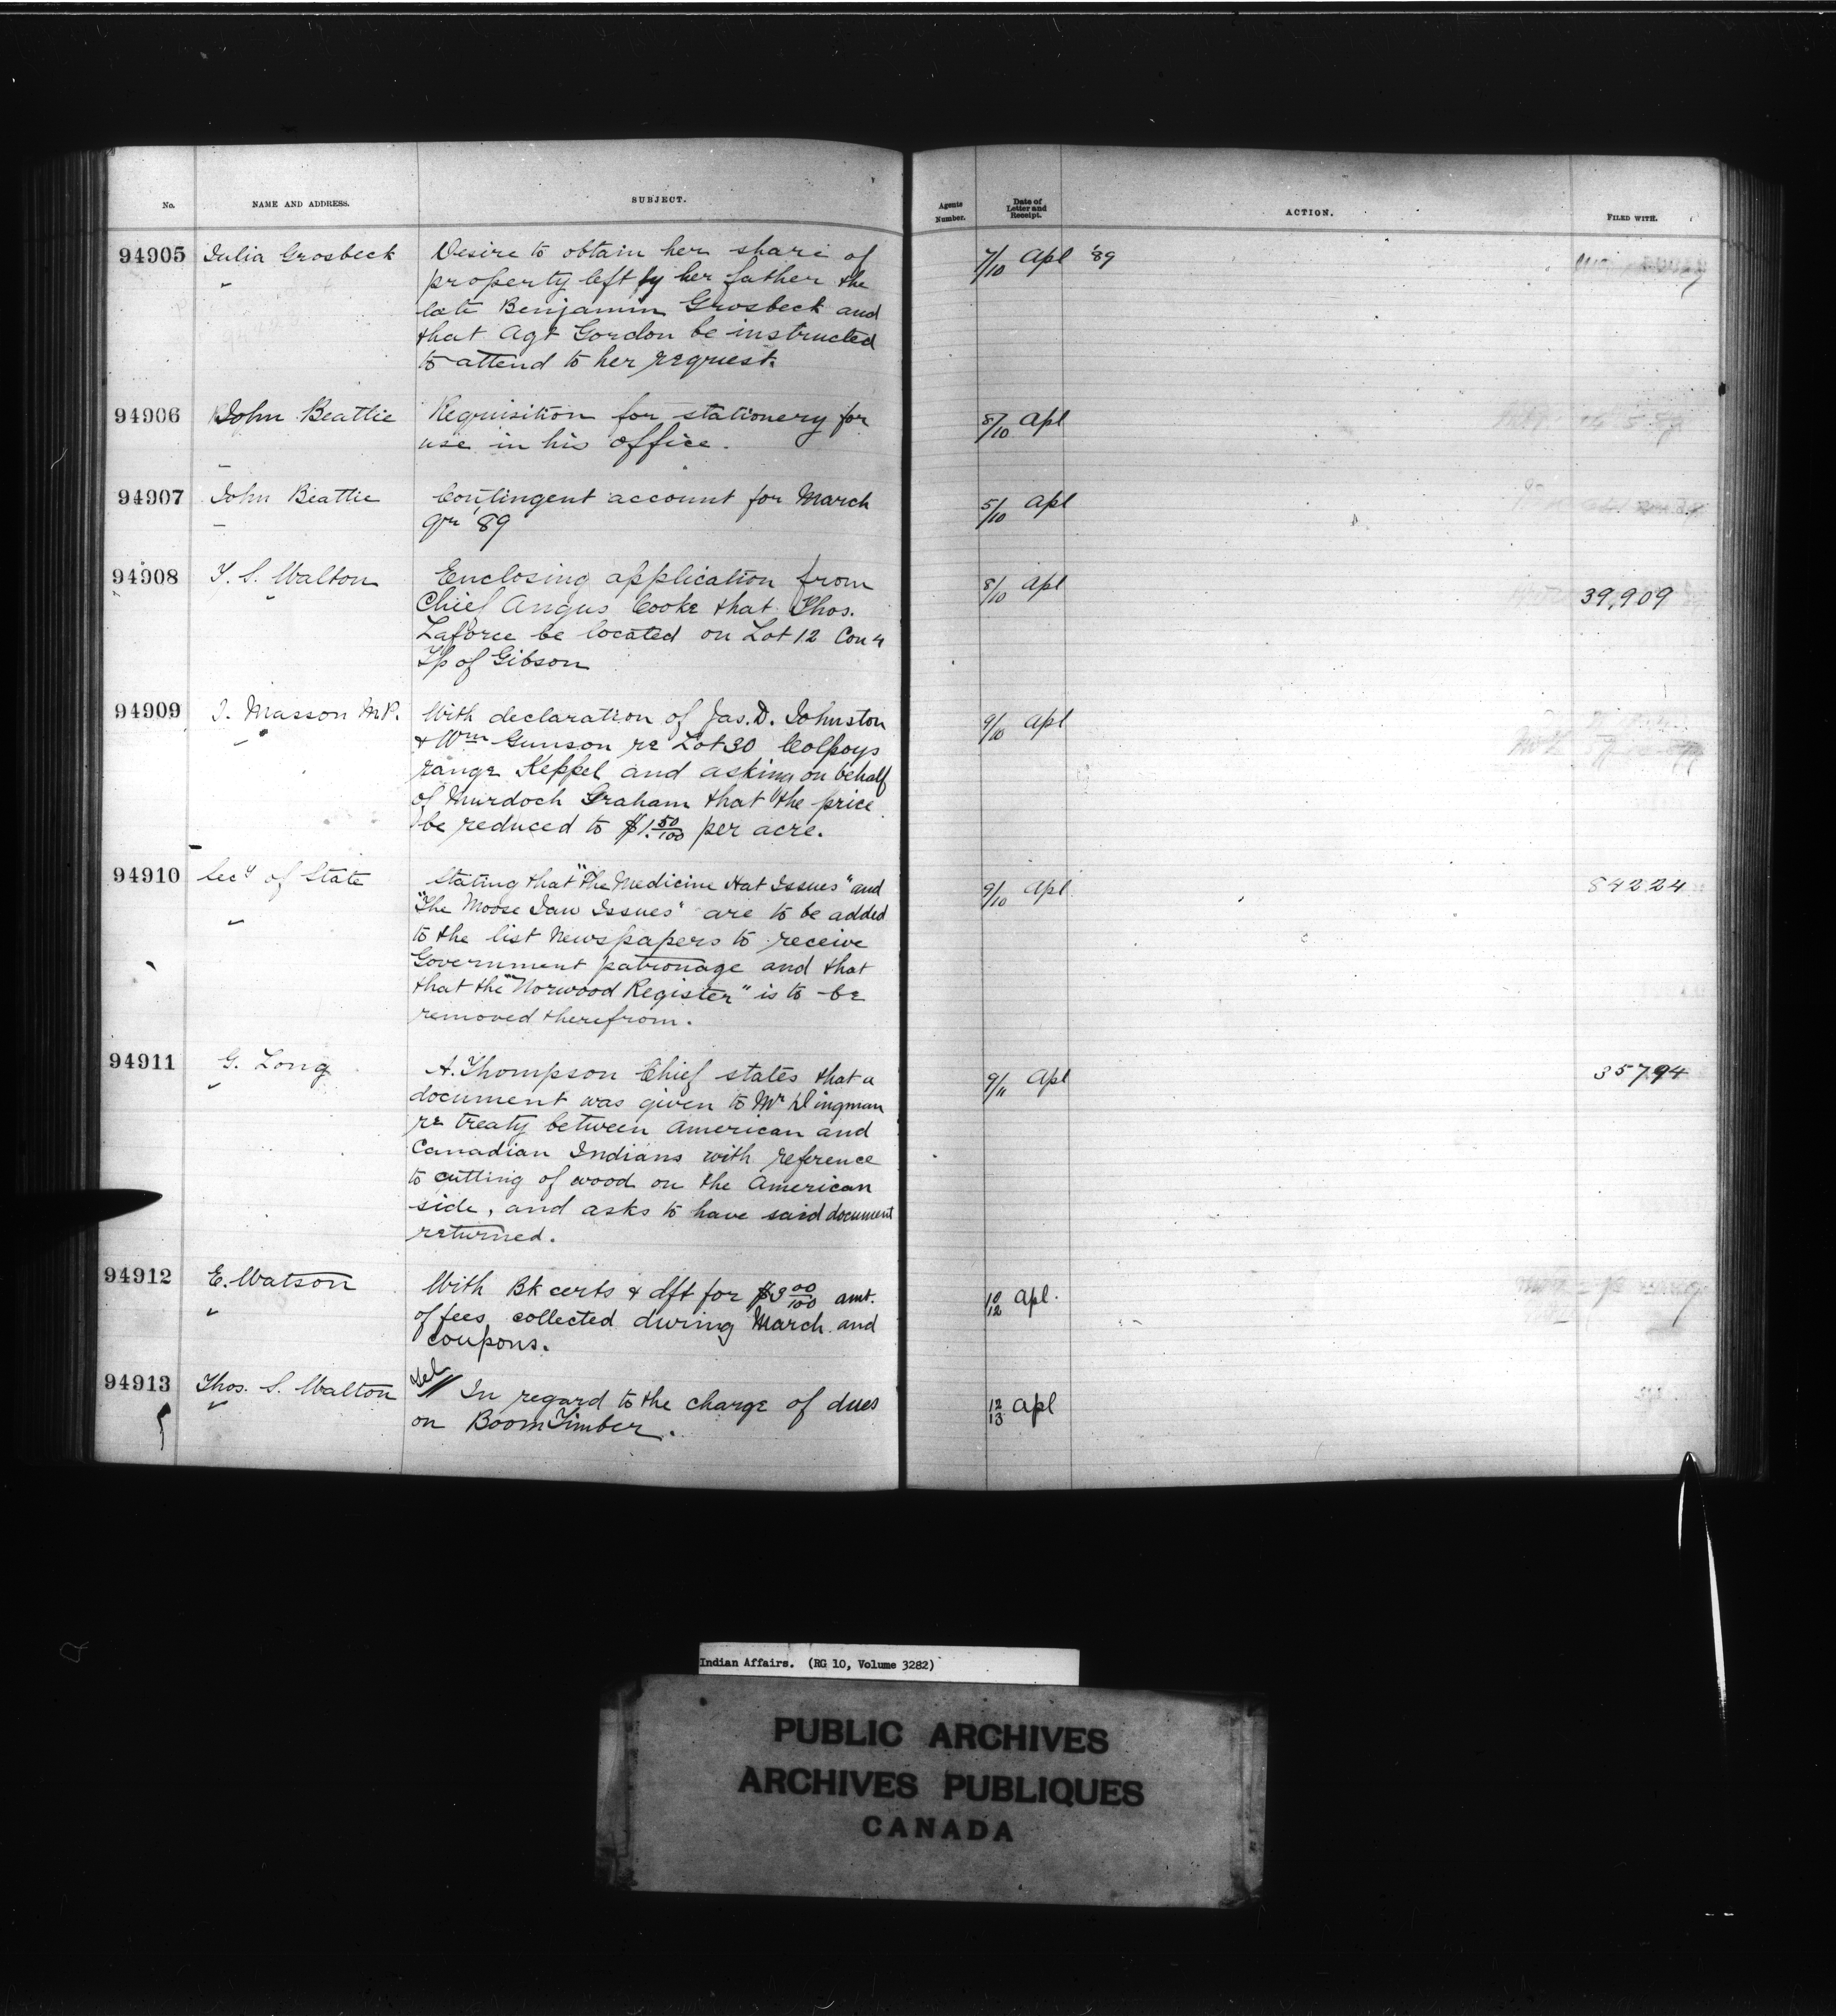 No. NAME AND ADDRESS. SUBJECT. Agents Number. Date of Letter and Receipt. ACTION. FILED WITH.
94905 Julia Grosbeck Desire to obtain her share of 7/10 Apl '89
property left by her father the
late Benjamin Grosbeck and
that Agt Gordon be instructed
to attend to her request.
94906 John Beattie Requisition for stationery for 8/10 Apl
use in his office.
94907 John Beattie Contingent account for March 5/10 Apl
qr '89
94908 T. S. Walton Enclosing application from 8/10 Apl 39,909
Chief Angus Cooke that Thos.
Laforce be located on Lot 12 Con 4
Tp of Gibson
94909 J. Masson M.P. With declaration of Jas. D. Johnston 9/10 Apl
& Wm Gunson re Lot 30 Colpoys
range Keppel and asking on behalf
of Murdoch Graham that the price
be reduced to $1.50/100 per acre.
94910 Secy of State Stating that "The Medicine Hat Issues" and 9/10 Apl 84224
"The Moose Jaw Issues" are to be added
to the list Newspapers to receive
Government patronage and that
that the "Norwood Register" is to be
removed therefrom.
94911 G. Long A. Thompson Chief states that a 9/11 Apl 35794
document was given to Mr Dingman
re treaty between American and
Canadian Indians with reference
to cutting of wood on the American
side, and asks to have said document
returned.
94912 E. Watson With Bk certs & dft for $3 00/100 amt. 10/12 Apl.
of fees collected during March and
coupons.
94913 Thos. S. Walton In regard to the charge of dues 12/13 Apl
on Boom Timber.
Indian Affairs. (RG 10, Volume 3282)
PUBLIC ARCHIVES
ARCHIVES PUBLIQUES
CANADA